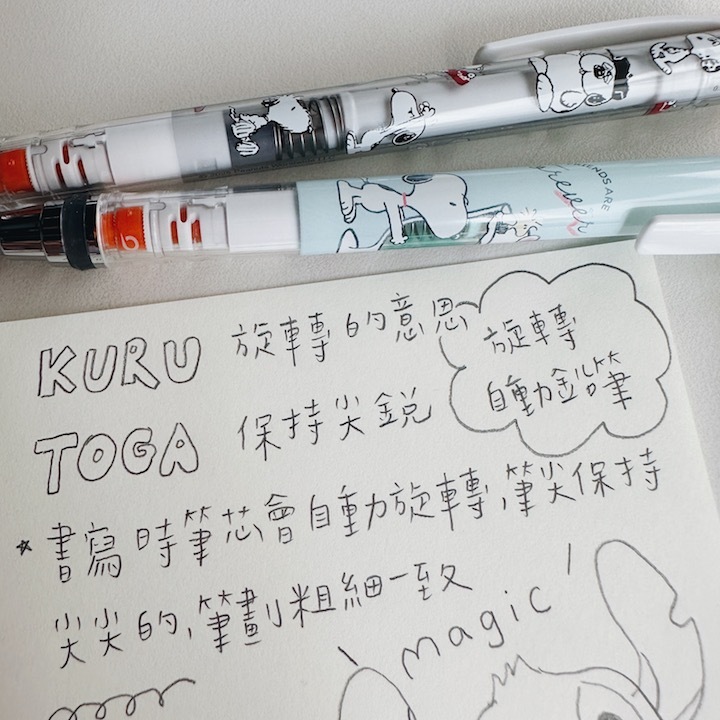 ENDS ARE
forever
KURU 旋轉的意思
旋轉
自動鉛筆
TOGA 保持尖銳
*書寫時筆芯會自動旋轉,筆尖保持
尖尖的,筆劃粗細一致
magic